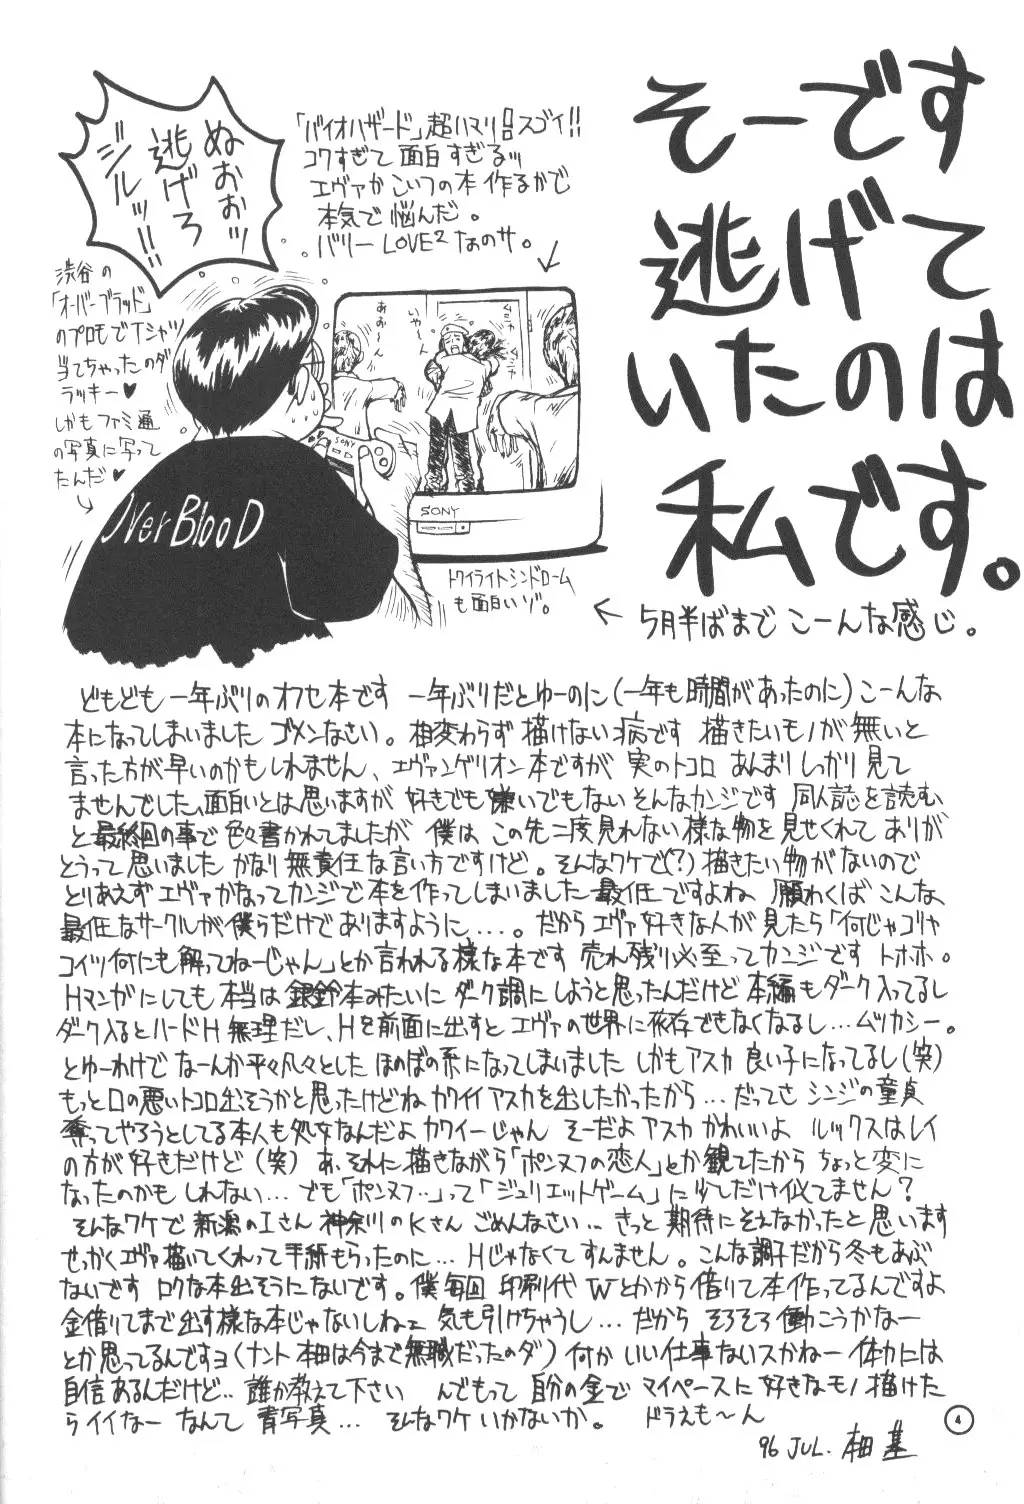 そーです
逃げて
いたのは
私です。
「バイオハザード」超ハマリ スゴイ!!
コワすぎて面白すぎるッ
エヴァかこいつの本作るかで
本気で悩んだ。
バリーLOVE2なのサ。
ぬおおッ
逃げろ
ジルッ!!
渋谷の
「オーバーブラッド」
のプロモでTシャツ
当てちゃったのダ
ラッキー♥
しかもファミ通
の写真に写って
たんだ♥
いや〜ん
あお〜ん
OverBlooD
SONY
SONY
トワイライトシンドローム
も面白いゾ。
← 5月半ばまでこーんな感じ。
どもども一年ぶりのオフセ本です 一年ぶりだとゆーのに(一年も時間があったのに)こーんな
本になってしまいました ゴメンなさい。相変わらず描けない病です 描きたいモノが無いと
言った方が早いのかもしれません、エヴァンゲリオン本ですが 実のトコロ あんまりしっかり見て
ませんでした、面白いとは思いますが 好きでも嫌いでもないそんなカンジです 同人誌を読む
と最終回の事で色々書かれてましたが 僕は この先二度見れない様な物を見せくれて ありが
とうって思いました かなり無責任な言い方ですけど。そんなワケで(?)描きたい物がないので
とりあえずエヴァかなってカンジで本を作ってしまいました 最低ですよね 願わくば こんな
最低なサークルが僕らだけでありますように…。だからエヴァ好きな人が見たら「何じゃゴりゃ
コイツ何にも解ってねーじゃん」とか言われる様な本です 売れ残り必至ってカンジです トホホ。
Hマンガにしても本当は銀鈴本みたいに ダーク調にしようと思ったんだけど 本編もダーク入ってるし
ダーク入るとハードH無理だし、Hを前面に出すと エヴァの世界に依存できなくなるし…ムツカシー。
とゆーわけで なーんか平々凡々とした ほのぼの系になってしまいました しかもアスカ 良い子になってるし(笑)
もっと口の悪いトコロ出そうかと思ったけどね カワイイアスカを出したかったから…だってさ シンジの童貞
奪ってやろうとしてる本人も処女なんだよ カワイーじゃん そーだよ アスカ かわいいよ ルックスはレイ
の方が好きだけど(笑) あ、それに描きながら「ポンヌフの恋人」とか観てたから ちょっと変に
なったのかも しれない… でも「ポンヌフ‥」って「ジュリエットゲーム」に少しだけ似てません?
そんなワケで 新潟のIさん 神奈川のKさん ごめんなさい‥ きっと期待にそえなかったと思います
せっかくエヴァ描いてくれって手紙もらったのに… Hじゃなくてすんません。こんな調子だから冬もあぶ
ないです ロクな本出そうにないです。僕毎回 印刷代 Wとかから借りて本作ってるんですよ
金借りてまで出す様な本じゃないしねェ 気も引けちゃうし…だから そろそろ働こうかなー
とか思ってるんですヨ(ナント 本田は今まで無職だったのダ) 何か いい仕事ないスかねー 体力には
自信あるんだけど‥誰か教えて下さい んでもって 自分の金で マイペースに好きなモノ描けた
らイイなー なんて 青写真… そんなワケ いかないか。 ドラえも〜ん
4
96 JUL.